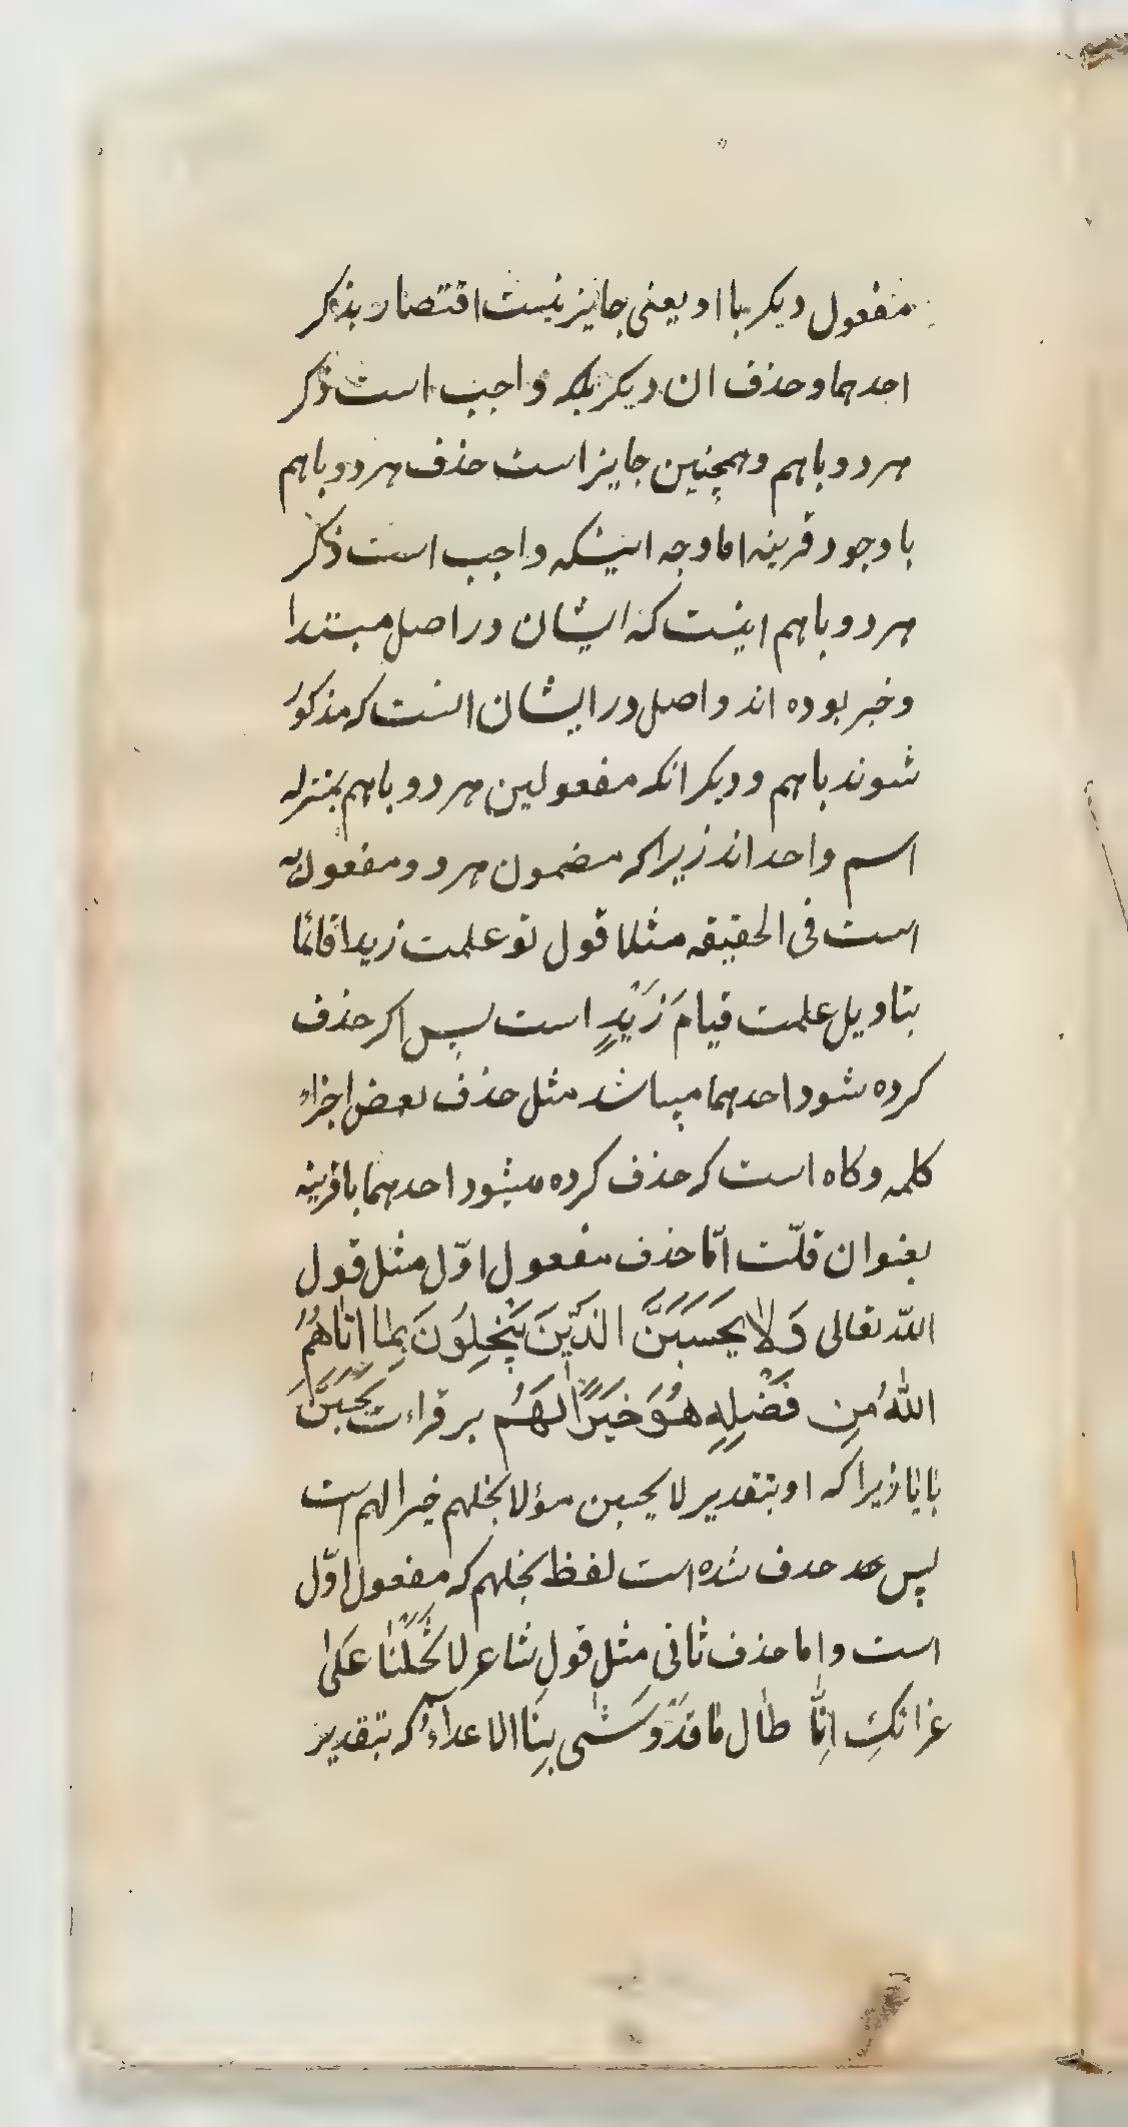 مفعول دیکر با او یعنی جایز نیست اقتصار بذکر
احدهما و حذف ان دیکر بلکه واجب است ذکر
هر دو باهم و همچنین جایز است حذف هر دو باهم
با وجود قرینه اما وجه اینکه واجب است ذکر
هر دو باهم اینست که ایشان در اصل مبتدا
و خبر بوده اند و اصل در ایشان انست که مذکور
شوند باهم و دیکر انکه مفعولین هر دو باهم بمنزله
اسم واحد اند زیرا که مضمون هر دو مفعول به
است فی الحقیقه مثلا قول تو علمت زیدا قائما
بتاویل علمت قیامَ زَیْدٍ است پس اکر حذف
کرده شود احدهما میباشد مثل حذف بعض اجزاء
کلمه و کاه است که حذف کرده میشود احدهما با قرینه
بعنوان قلّت امّا حذف مفعول اوّل مثل قول
اللّه تعالی وَلا یَحسَبَنَّ الَّذینَ یَبْخَلُونَ بِما اتاهُمُ
اللّهُ مِن فَضْلِهِ هُوَ خَیْرًا لَهُم بر قراءت یَحسَبَنَّ
بایا زیرا که او بتقدیر لا یحسبن هؤلا بخلهم خیرا لهم است
پس حذف شده است لفظ بخلهم که مفعول اوّل
است و اما حذف ثانی مثل قول شاعر لا تَخَلْنا عَلیٰ
غراتکِ اِنّا طال ما قَدْ وَشیٰ بِنَا الاعداءُ که بتقدیر